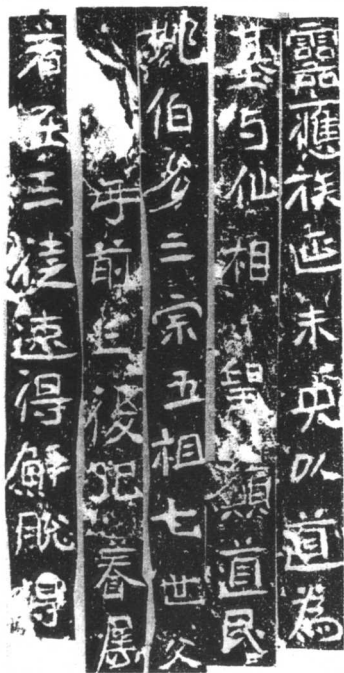 靈應族迊未央以道為
基与仙相望願道民
姚伯多三宗五相七世父
母前亡後死眷属
若在三徒速得解脫得